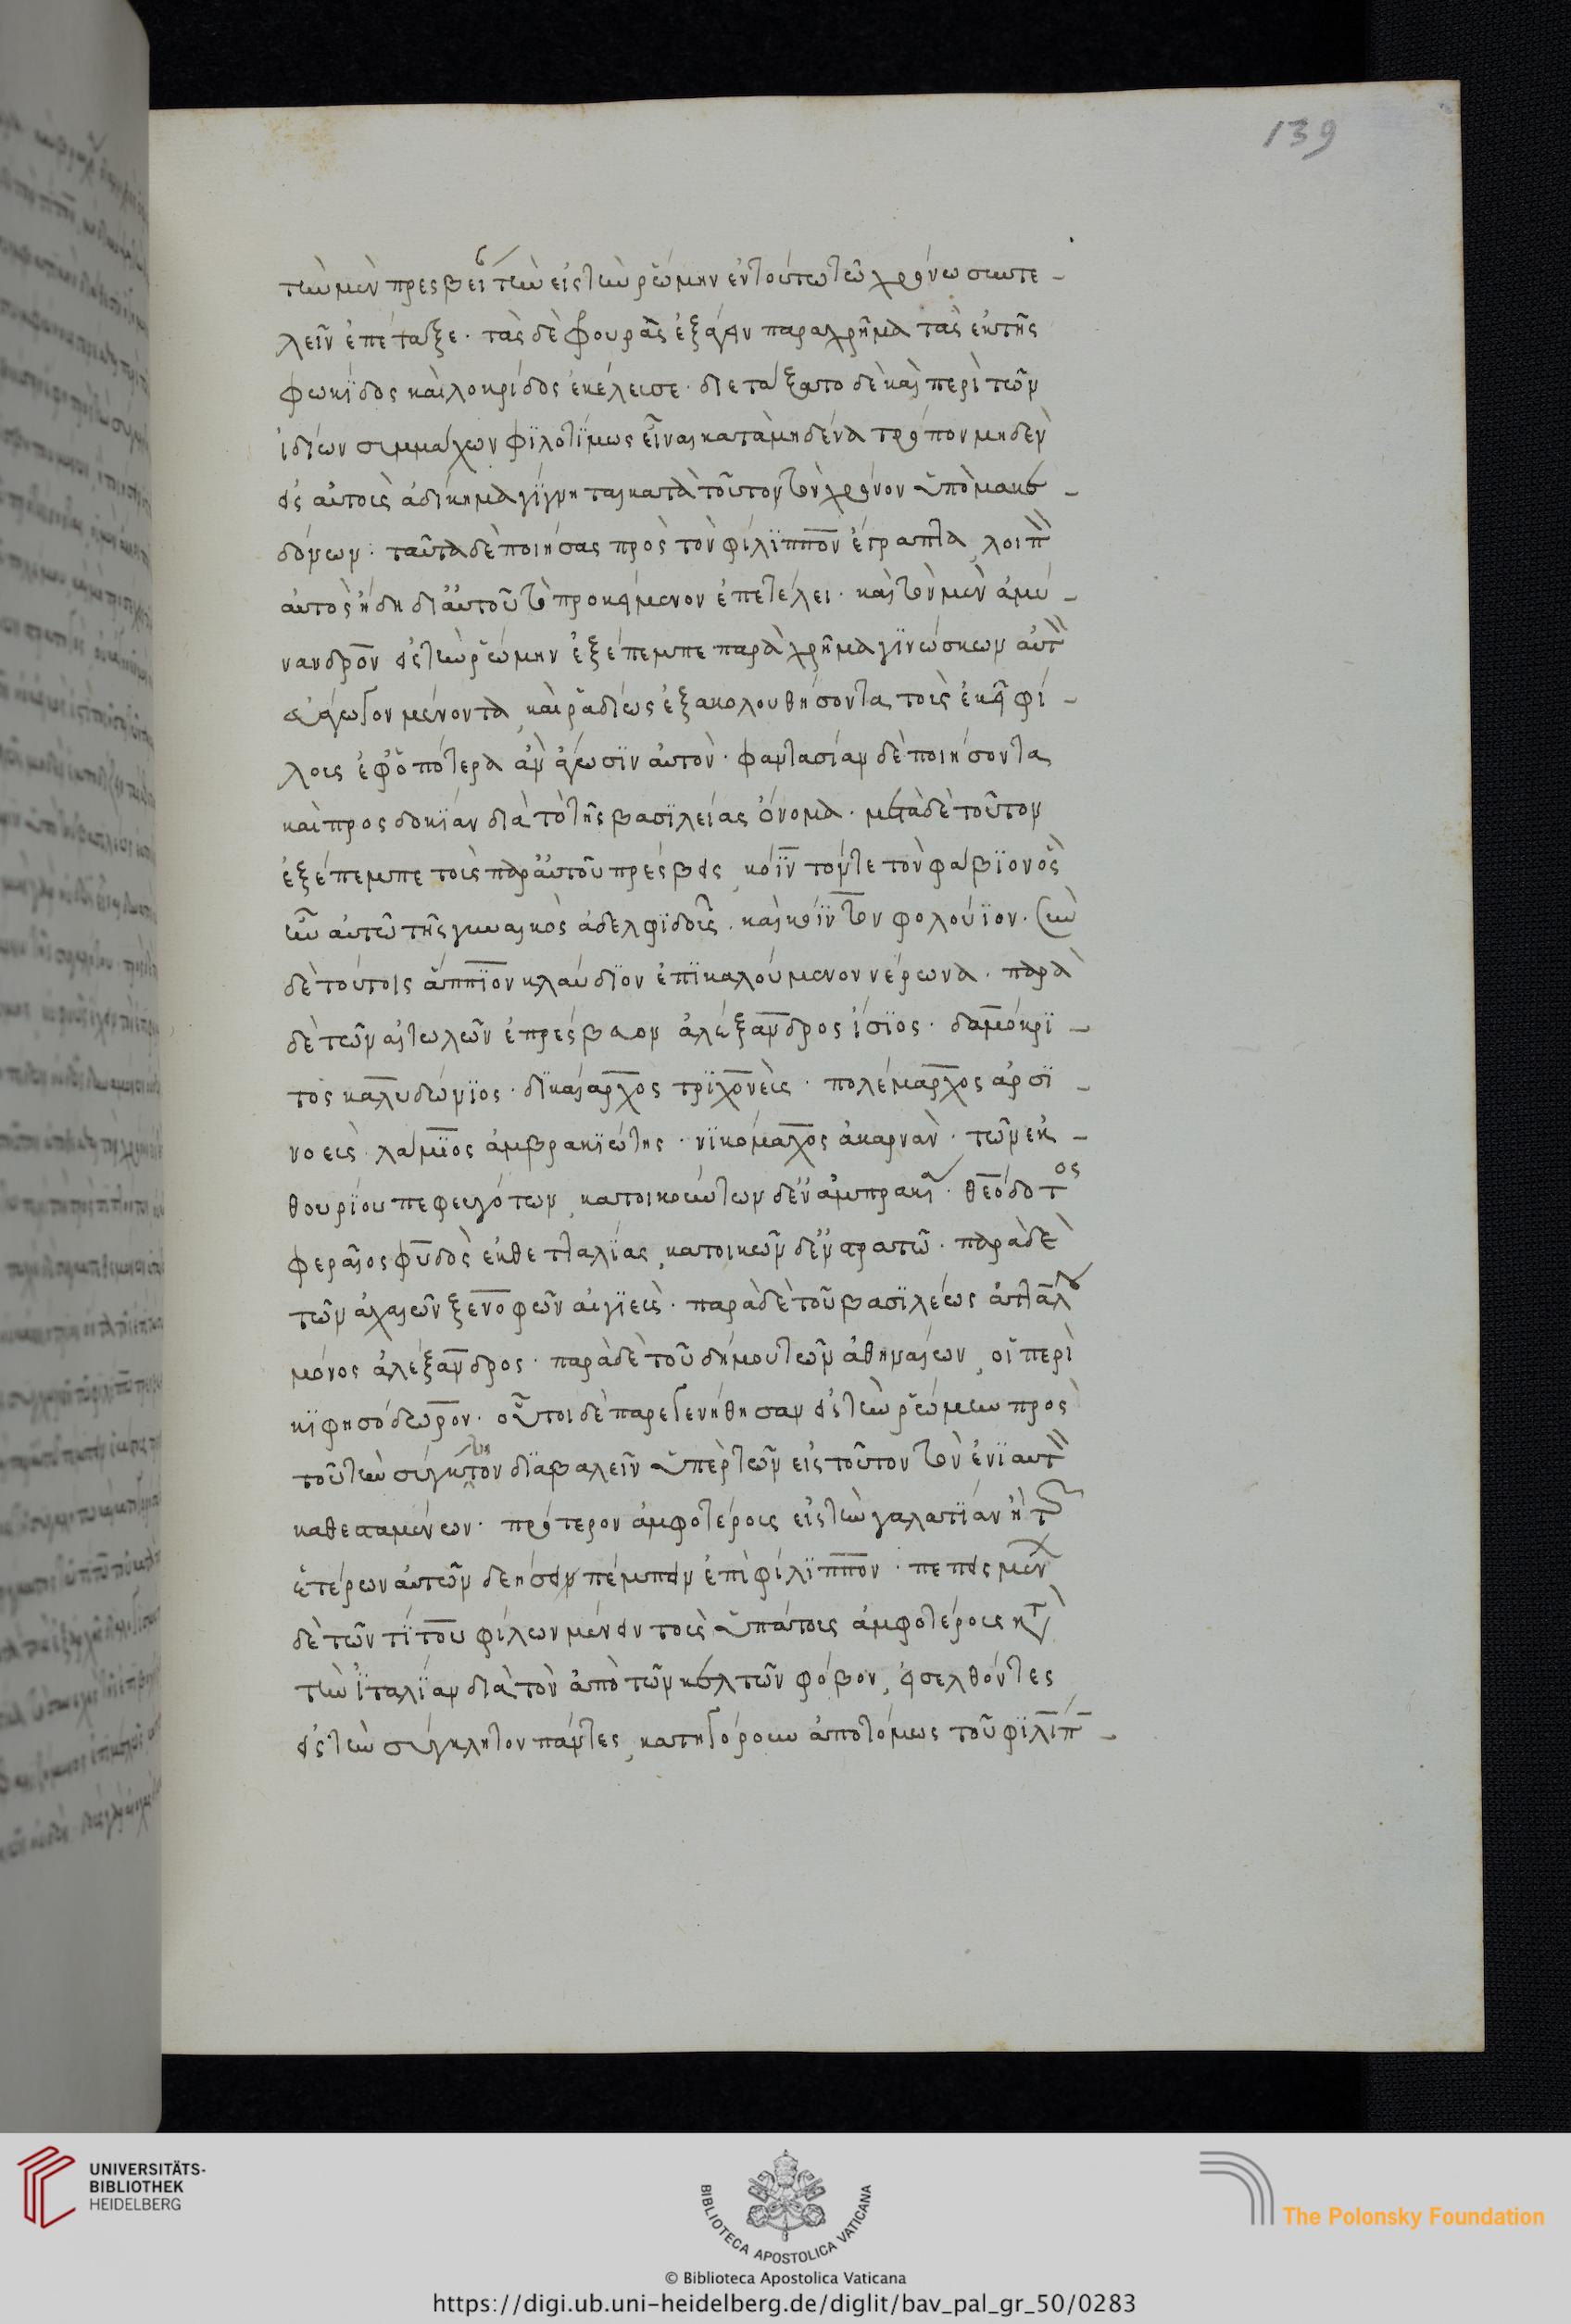 139
τὴν μὲν πρεσβείαν τὴν εἰς τὴν ῥώμην ἐν τούτω τῶ χρόνω συντε-
λεῖν ἐπέταξε· τὰς δὲ φρουρᾶς ἐξάγειν παραχρῆμα τὰς ἐκ τῆς
φωκίδος καὶ λοκρίδος ἐκέλευσε· διετάξατο δὲ καὶ περὶ τῶν
ἰδίων συμμάχων φιλοτίμως εἶναι κατὰ μηδένα τρόπον μηδὲν
εἰς αὐτοὺς ἀδίκημα γίγνηται κατὰ τοῦτον τὸν χρόνον ὑπὸ μακε-
δόνων: ταῦτα δὲ ποιήσας πρὸς τὸν φίλιππον ἔγραπτα, λοιπὸν
αὐτὸς ἤδη δι αὐτοῦ τὸ προκείμενον ἐπετέλει· καὶ τὸν μὲν ἀμύ-
νανδρον εἰς τὴν ῥώμην ἐξέπεμπε παραχρῆμα γινώσκων αὐτὸν
εὐάγωγον μένοντα, καὶ ῥαδίως ἐξακολουθήσοντα τοῖς ἐκεῖ φί-
λοις ἐφ' ὁπότερα ἂν ἄγωσιν αὐτὸν· φαντασίαν δὲ ποιήσοντα
καὶ προσδοκίαν διὰ τὸ τῆς βασιλείας ὄνομα· μετὰ δὲ τοῦτον
ἐξέπεμπε τοὺς παρ αὐτοῦ πρέσβεις, κόϊν τόν τε τὸν φάβιον ὃς
ἦν αὐτῶ τῆς γυναικὸς ἀδελφιδοῦς· καὶ κόϊντον φολούϊον· σὺν
δὲ τούτοις ἄππιον κλαύδιον ἐπικαλούμενον νέρωνα· παρὰ
δὲ τῶν αἰτωλῶν ἐπρέσβευον ἀλέξανδρος ἴσιος· δαμόκρι-
τος καλυδώνιος· δικαίαρχος τριχονεὺς· πολέμαρχος ἀρσι-
νοεὺς λάμιος ἀμβρακιώτης· νικόμαχος ἀκαρνὰν· τῶν ἐκ
θουρίου πεφευγότων, κατοικούντων δ' ἐν ἀμπρακία· θεόδοτος
φεραῖος φυδὸς ἐκ θετταλίας, κατοικῶν δ' ἐν στρατῶ· παρὰ δὲ
τῶν ἀχαιῶν ξενοφῶν αἰγιεὺς· παρὰ δὲ τοῦ βασιλέως ἀττάλου
μόνος ἀλέξανδρος· παρὰ δὲ τοῦ δήμου τῶν ἀθηναίων, οἱ περὶ
κιφησόδωρον· οὗτοι δὲ παρεγενήθησαν εἰς τὴν ῥώμην πρὸς
τοῦ τὴν σύγκλητον διαβαλεῖν ὑπὲρ τῶν εἰς τοῦτον τὸν ἐνιαυτὸν
καθεσταμένων· πρότερον ἀμφοτέρους εἰς τὴν γαλατίαν ἢ τὸν
ἑτέρων αὐτῶν δεήσει πέμπειν ἐπὶ φίλιππον· πεπεισμένων
δὲ τῶν τίτου φίλων μένειν τοὺς ὑπάτους ἀμφοτέρους κατὰ
τὴν ἰταλίαν διὰ τὸν ἀπὸ τῶν κελτῶν φόβον, εἰσελθόντες
εἰς τὴν σύγκλητον πάντες, κατηγόρουν ἀποτόμως τοῦ φιλίπ-
UNIVERSITÄTS-
BIBLIOTHEK
HEIDELBERG
BIBLIOTECA APOSTOLICA VATICANA
The Polonsky Foundation
© Biblioteca Apostolica Vaticana
https://digi.ub.uni-heidelberg.de/diglit/bav_pal_gr_50/0283